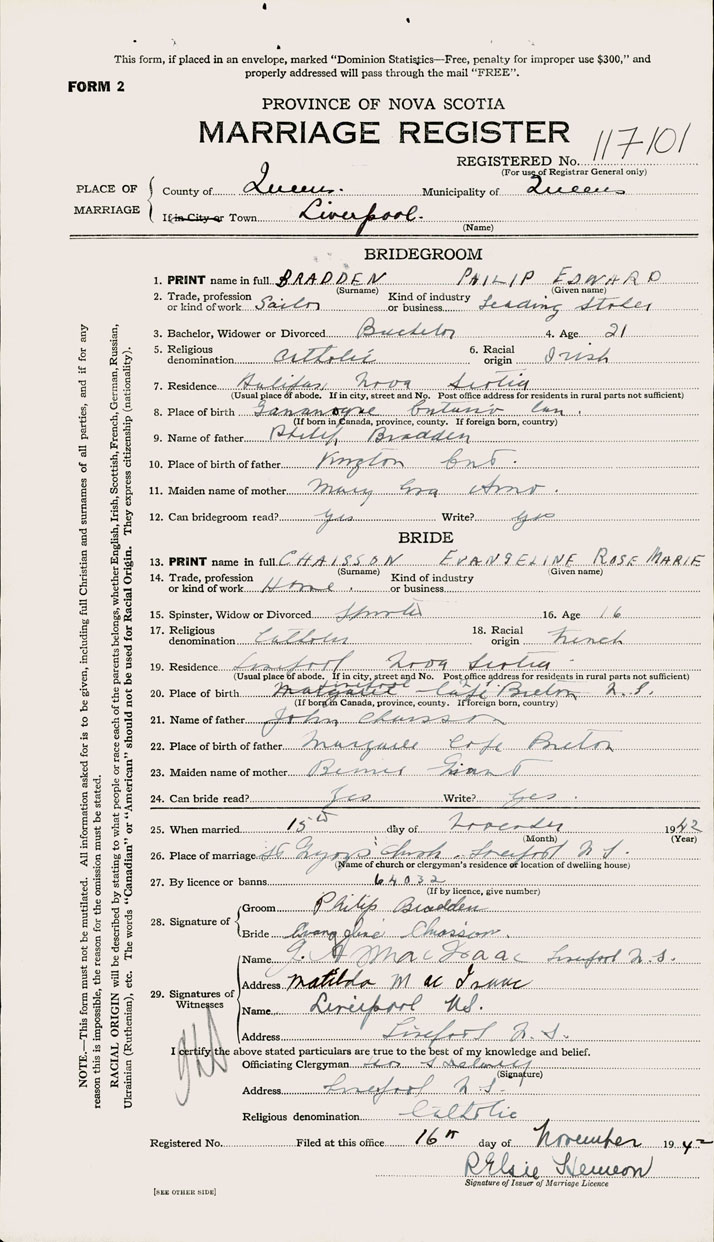 This form, if placed in an envelope, marked "Dominion Statistics—Free, penalty for improper use $300," and
properly addressed will pass through the mail "FREE".
FORM 2
PROVINCE OF NOVA SCOTIA
MARRIAGE REGISTER
117101
REGISTERED No.
(For use of Registrar General only)
PLACE OF MARRIAGE
County of Queens. Municipality of Queens
If in City or Town Liverpool.
(Name)
BRIDEGROOM
1. PRINT name in full BRADDEN PHILIP EDWARD
(Surname) (Given name)
2. Trade, profession or kind of work Sailor Kind of industry or business Leading Stoker
3. Bachelor, Widower or Divorced Bachelor 4. Age 21
5. Religious denomination Catholic 6. Racial origin Irish
7. Residence Halifax Nova Scotia
(Usual place of abode. If in city, street and No. Post office address for residents in rural parts not sufficient)
8. Place of birth Gananoque Ontario Can.
(If born in Canada, province, county. If foreign born, country)
9. Name of father Philip Bradden
10. Place of birth of father Kington Ont.
11. Maiden name of mother Mary Eva
12. Can bridegroom read? Yes Write? Yes
BRIDE
13. PRINT name in full CHAISSON EVANGELINE ROSE MARIE
(Surname) (Given name)
14. Trade, profession or kind of work Home. Kind of industry or business
15. Spinster, Widow or Divorced Spinster 16. Age 16
17. Religious denomination Catholic 18. Racial origin French
19. Residence Liverpool Nova Scotia
(Usual place of abode. If in city, street and No. Post office address for residents in rural parts not sufficient)
20. Place of birth Cape Breton N.S.
(If born in Canada, province, county. If foreign born, country)
21. Name of father John Chaisson
22. Place of birth of father Margaree Cape Breton
23. Maiden name of mother
24. Can bride read? Yes Write? Yes.
25. When married 15th day of November 1942
(Month) (Year)
26. Place of marriage St Church. Liverpool N.S.
(Name of church or clergyman's residence or location of dwelling house)
27. By licence or banns 64032
(If by licence, give number)
28. Signature of Groom Philip Bradden
Bride Evangeline Chaisson.
29. Signatures of Witnesses
Name G. A MacIsaac Liverpool N.S.
Address Matilda Mac Isaac
Name Liverpool N.S.
Address Liverpool N.S.
I certify the above stated particulars are true to the best of my knowledge and belief.
Officiating Clergyman
(Signature)
Address Liverpool N.S.
Religious denomination Catholic
Registered No. Filed at this office 16th day of November 1942
R Elsie Hemeon
Signature of Issuer of Marriage Licence
[SEE OTHER SIDE]
NOTE.—This form must not be mutilated. All information asked for is to be given, including full Christian and surnames of all parties, and if for any
reason this is impossible, the reason for the omission must be stated.
RACIAL ORIGIN will be described by stating to what people or race each of the parents belongs, whether English, Irish, Scottish, French, German, Russian,
Ukrainian (Ruthenian), etc. The words "Canadian" or "American" should not be used for Racial Origin. They express citizenship (nationality).